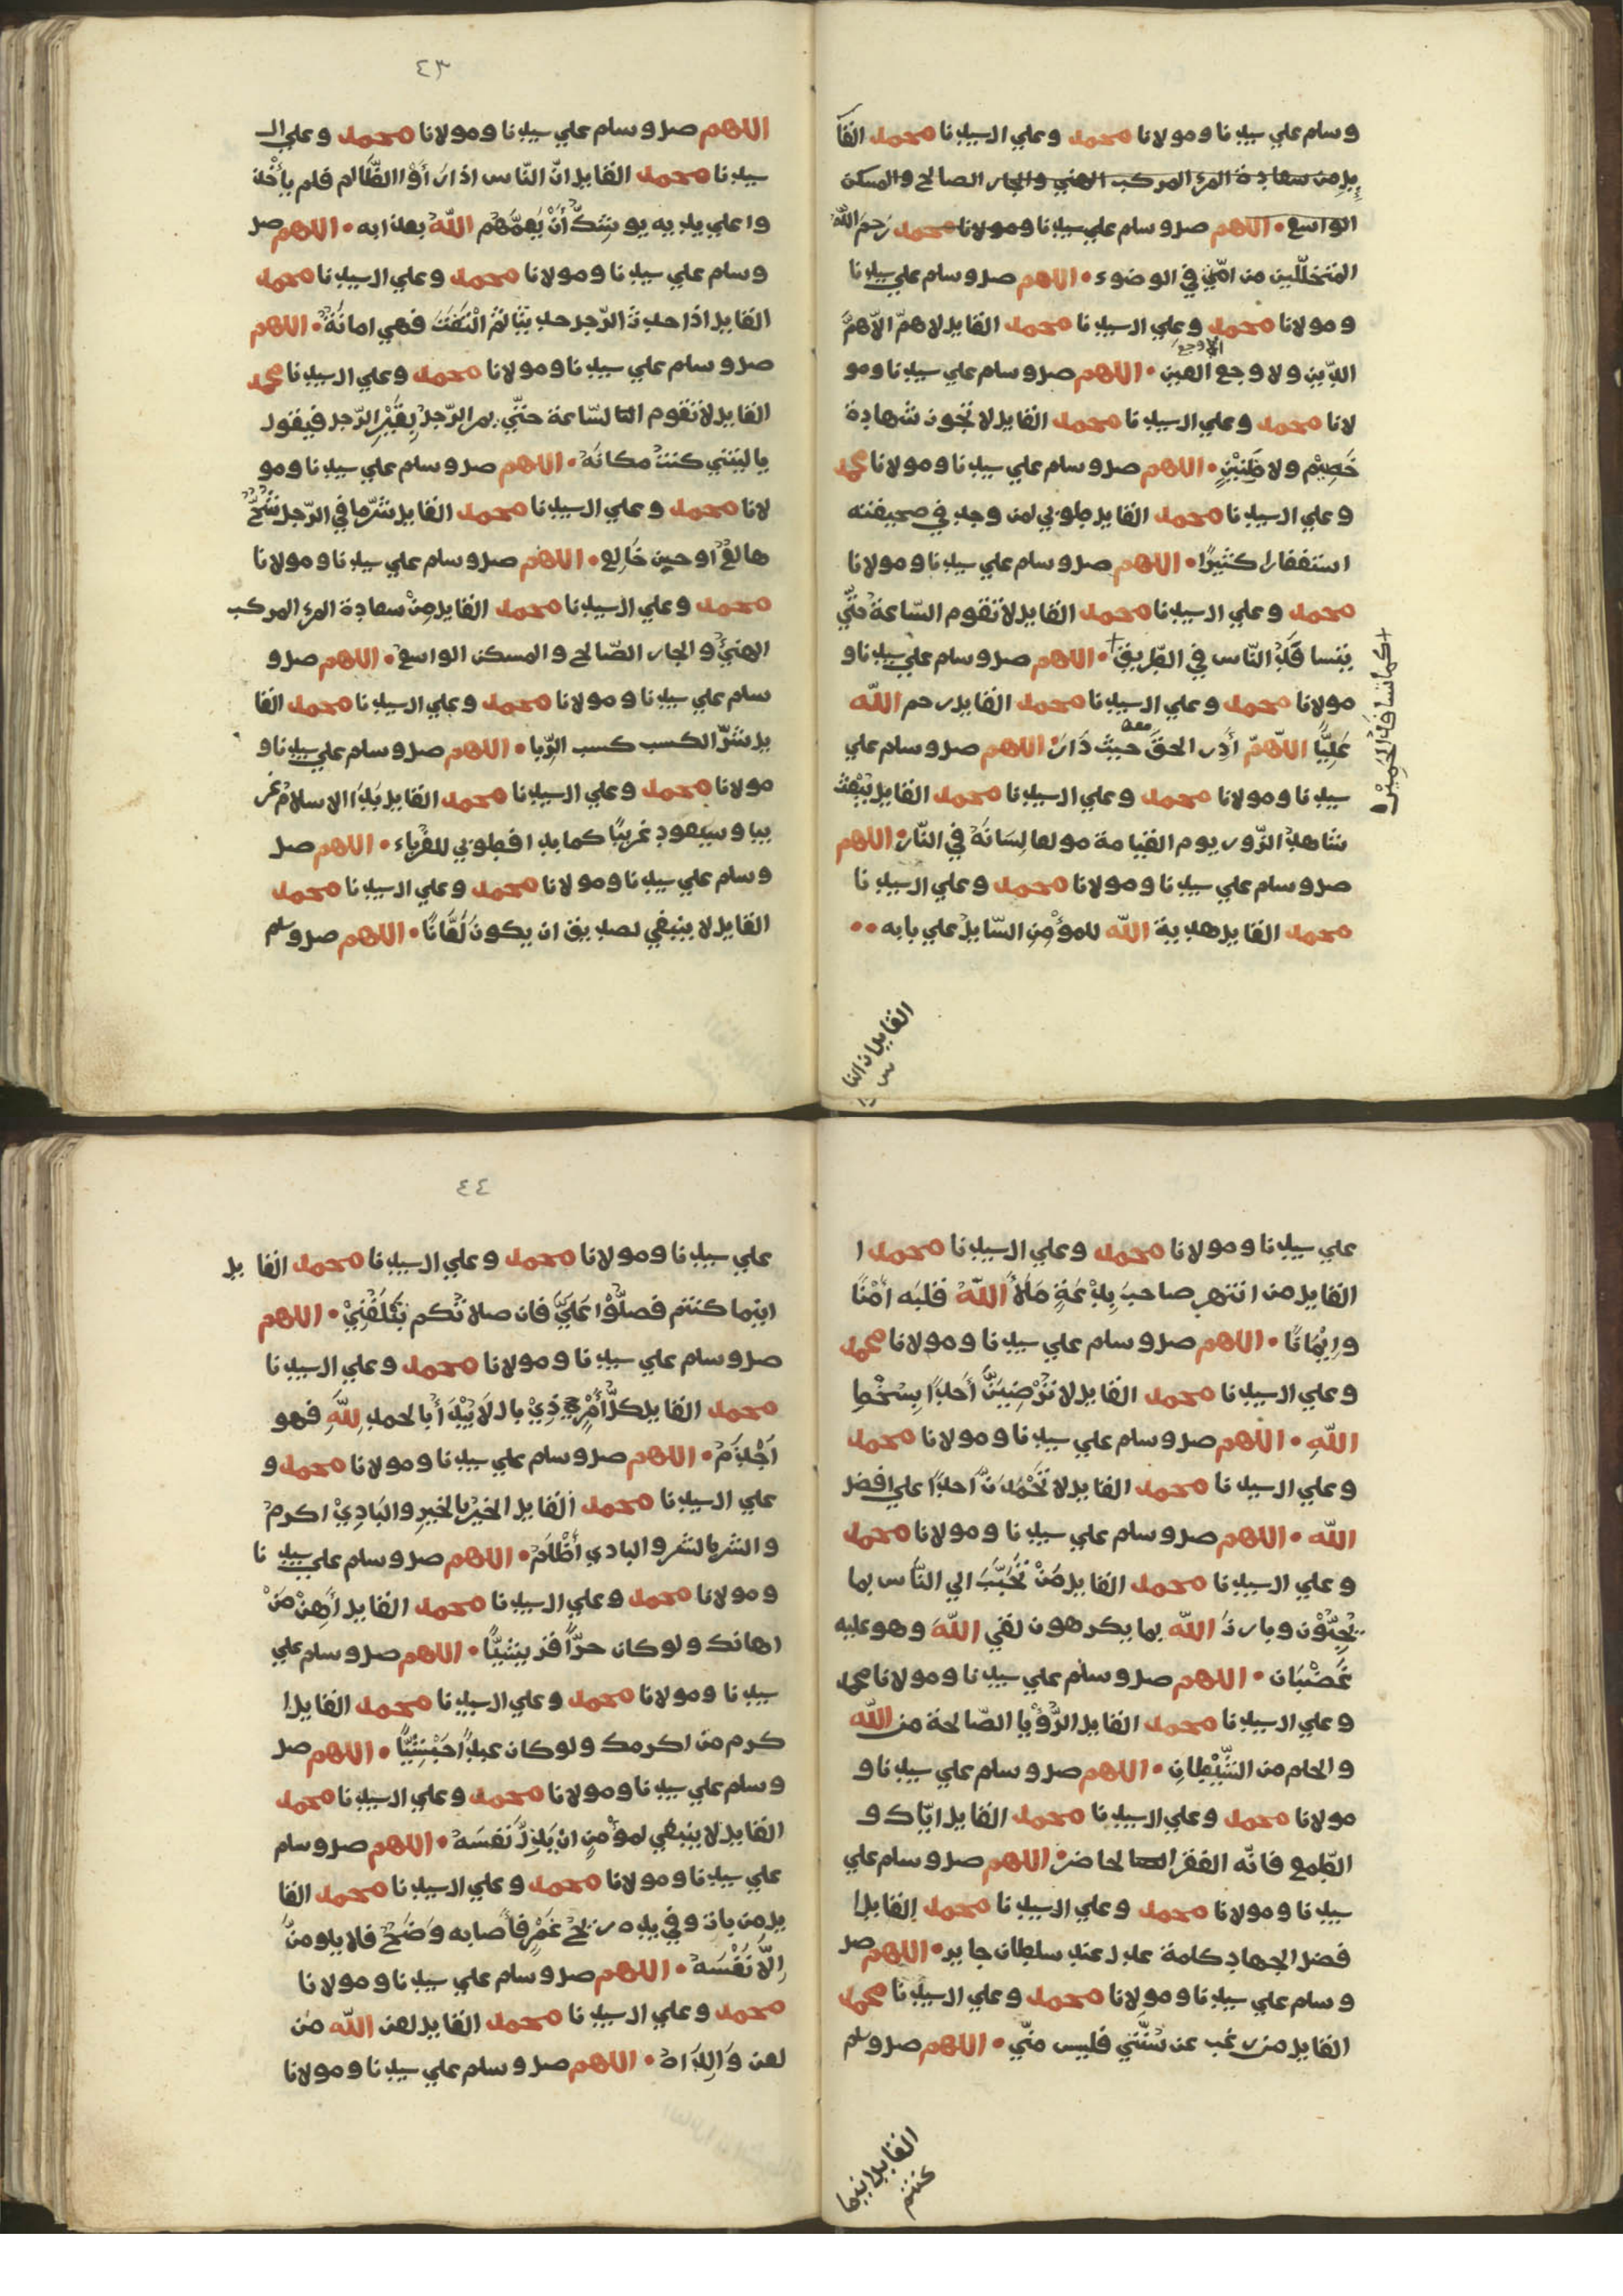 وسلم علي سيدنا ومولانا محمد وعلي ال سيدنا محمد القا
يل من سعادة المرء المركب الهني والجار الصالح والمسكن
الواسع • اللهم صل وسلم علي سيدنا ومولانا محمد رَحِمَ اللّه
المتخلّلين من امّتي في الوضوء • اللهم صل وسلم علي سيدنا
ومولانا محمد وعلي ال سيدنا محمد القايل لا همّ الّا همّ
الدّين ولا وجع العين • اللهم صل وسلم علي سيدنا ومو
الا وجع
لانا محمد وعلي ال سيدنا محمد القايل لا تجون شهادة
خَصِيْم ولا ظَنِيْنٍ • اللهم صل وسلم علي سيدنا ومولانا محمد
وعلي ال سيدنا محمد القايل طوبي لمن وجد في صحيفته
استغفارا كثيرًا • اللهم صل وسلم علي سيدنا ومولانا
محمد وعلي ال سيدنا محمد القايل لا تقوم السّاعة حتّي
يتسافَدُ النّاس في الطّريق • اللهم صل وسلم علي سيدنا و
+ كما تتسافَدُ الْحَمِيْر
مولانا محمد وعلي ال سيدنا محمد القايل رحم اللّه
عَلِيًّا اللّهمّ أَدِرِ الحقّ معه حيث دَارَ • اللهم صل وسلم علي
سيدنا ومولانا محمد وعلي ال سيدنا محمد القايل يُبْعَث
شاهد الزّور يوم القيامة مولعا لِسَانَهُ في النّار • اللهم
صل وسلم علي سيدنا ومولانا محمد وعلي ال سيدنا
محمد القايل هدية اللّه للموْمِنِ السّايلُ علي بابه ••
القايل ان النا
س
٤٣
اللهم صل وسلم علي سيدنا ومولانا محمد وعلي ال
سيدنا محمد القايل انّ النّاس اذا رَأَوْا الظّالم فلم يأْخُذ
وا علي يديه يوشكُ أَنْ يَعمَّهُم اللّهُ بعذابه • اللهم صل
وسلم علي سيدنا ومولانا محمد وعلي ال سيدنا محمد
القايل اذا حدث الرّجل حديثا ثمّ الْتَفَتَ فهي امانَةٌ • اللهم
صل وسلم علي سيدنا ومولانا محمد وعلي ال سيدنا محمد
القايل لا تقوم السّاعة حتّي يمر الرّجلُ بِقَبْرِ الرّجل فيقول
يا ليتني كنتُ مكانَهُ • اللهم صل وسلم علي سيدنا ومو
لانا محمد وعلي ال سيدنا محمد القايل شرّ ما في الرّجل شُحٌّ
هالعٌ او حبن خَالِع • اللهم صل وسلم علي سيدنا ومولانا
محمد وعلي ال سيدنا محمد القايل مِنْ سعادة المرء المركب
الهنيُّ والجار الصّالح والمسكن الواسعُ • اللهم صل و
سلم علي سيدنا ومولانا محمد وعلي ال سيدنا محمد القا
يل شرّ الكسب كسب الرّبا • اللهم صل وسلم علي سيدنا و
مولانا محمد وعلي ال سيدنا محمد القايل بَدَا الاسلامُ غر
يبا وسيعود غريبًا كما بدا فطوبي للغُرباء • اللهم صل
وسلم علي سيدنا ومولانا محمد وعلي ال سيدنا محمد
القايل لا ينبغي لصديق ان يكون لَعَّانًا • اللهم صل وسلم
علي سيدنا ومولانا محمد وعلي ال سيدنا محمد ا
القايل من انتهر صاحبَ بِدْعَةٍ مَلَأَ اللّهُ قلبَه أَمْنًا
واِيْمَانًا • اللهم صل وسلم علي سيدنا ومولانا محمد
وعلي ال سيدنا محمد القايل لا تُرْضِيَنَّ أَحدًا بِسَخْطِ
اللّهِ • اللهم صل وسلم علي سيدنا ومولانا محمد
وعلي ال سيدنا محمد القايل لا تَحْمَدَنَّ احدًا علي افضل
اللّه • اللهم صل وسلم علي سيدنا ومولانا محمد
وعلي ال سيدنا محمد القايل مَنْ تَحَبَّبَ الي النّاس بما
يُحِبُّوْن وبارزَ اللّه بما يكرهون لقي اللّهَ وهو عليه
غَضْبَان • اللهم صل وسلم علي سيدنا ومولانا محمد
وعلي ال سيدنا محمد القايل الرُّؤْيا الصّالحة من اللّه
والحلم من الشَّيْطانِ • اللهم صل وسلم علي سيدنا و
مولانا محمد وعلي ال سيدنا محمد القايل ايّاك و
الطّمع فانّه الفقر الحاضر • اللهم صل وسلم علي
سيدنا ومولانا محمد وعلي ال سيدنا محمد القايل ا
فضل الجهاد كلمة عدل عند سلطان جاير • اللهم صل
وسلم علي سيدنا ومولانا محمد وعلي ال سيدنا محمد
القايل من رغب عن سُنَّتي فليس منّي • اللهم صل وسلم
القايل اينما
كنتم
٤٤
علي سيدنا ومولانا محمد وعلي ال سيدنا محمد القايل
اينما كنتم فصلُّوْا عَلَيَّ فان صلاتَكم تَبْلُغُنِيْ • اللهم
صل وسلم علي سيدنا ومولانا محمد وعلي ال سيدنا
محمد القايل كلُّ أَمْرٍ ذِيْ بال لَا يُبْدَأُ بالحمد لِلّهِ فهو
اَجْذَمُ • اللهم صل وسلم علي سيدنا ومولانا محمد و
علي ال سيدنا محمد القايل الخيْر بالخيرِ والبَادِيْ اكرمُ
والشر بالشر والبادي أَظْلَمُ • اللهم صل وسلم علي سيدنا
ومولانا محمد وعلي ال سيدنا محمد القايل أَهِنْ مَنْ
اهانك ولو كان حرًّا قريشيًّا • اللهم صل وسلم علي
سيدنا ومولانا محمد وعلي ال سيدنا محمد القايل ا
كرم من اكرمك ولو كان عبدًا حَبْشِيًّا • اللهم صل
وسلم علي سيدنا ومولانا محمد وعلي ال سيدنا محمد
القايل لا ينبغي لموْمنٍ ان يَذِلَّ نَفسَهُ • اللهم صل وسلم
علي سيدنا ومولانا محمد وعلي ال سيدنا محمد القا
يل من بات وفي يده ريحُ غَمْرٍ فأصابه وَضَحٌ فلا يلومنَّ
اِلّا نَفْسَهُ • اللهم صل وسلم علي سيدنا ومولانا
محمد وعلي ال سيدنا محمد القايل لعن اللّه من
لعن وَالِدَاهُ • اللهم صل وسلم علي سيدنا ومولانا